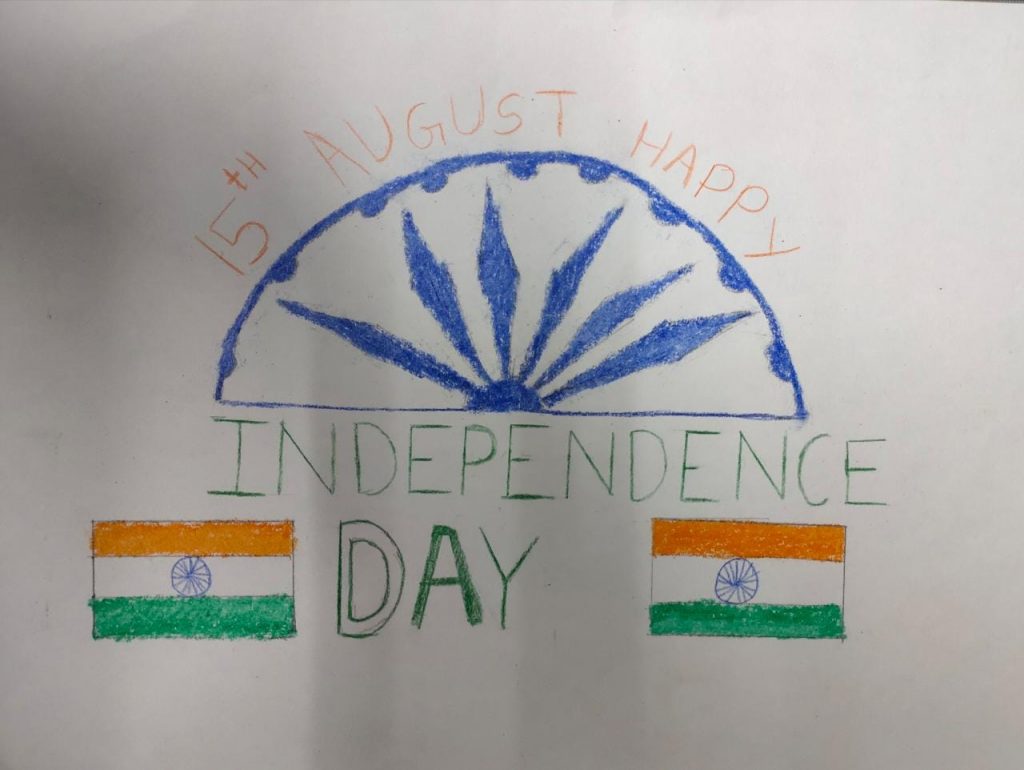 15TH AUGUST HAPPY
INDEPENDENCE
DAY